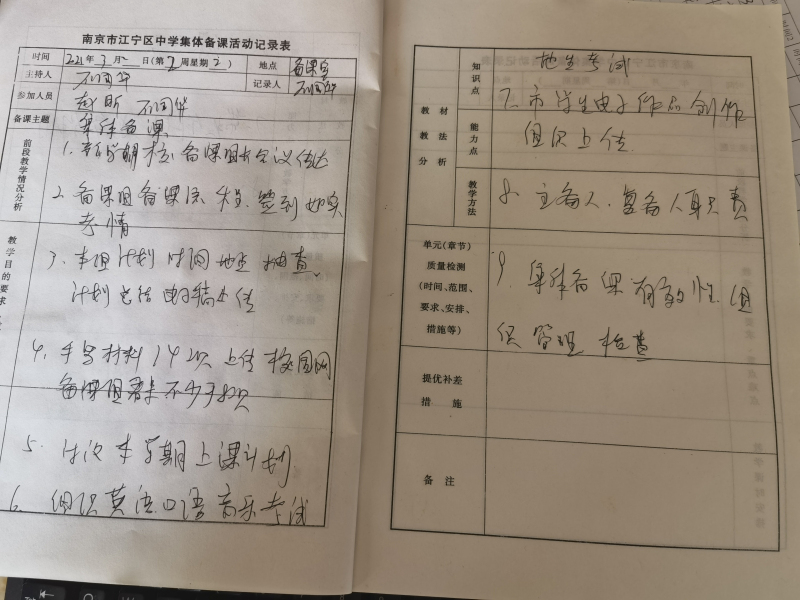 南京市江宁区中学集体备课活动记录表
时间 2021年3月2日(第2周星期2) 地点 备课室
主持人 记录人
参加人员 赵昕
备课主题 集体备课
前段教学情况分析
1. 新学期校备课组长会议传达
2. 备课组备课 签到 如实
考情
教学目的要求
3. 本组计划 时间 地点 抽查、
计划 总结 电子稿上传
4. 手写材料14次 上传 校园网
备课组 不少于 次
5. 本学期上课计划
6. 组织英语口语 音乐考试
教材教法分析
知识点 地生考试
7. 市学生电子作品创作
能力点 组织上传
教学方法 8. 主备人、复备人职责
单元(章节)
质量检测
(时间、范围、
要求、安排、
措施等)
9. 集体备课有效性 组
织管理 检查
提优补差
措 施
备 注